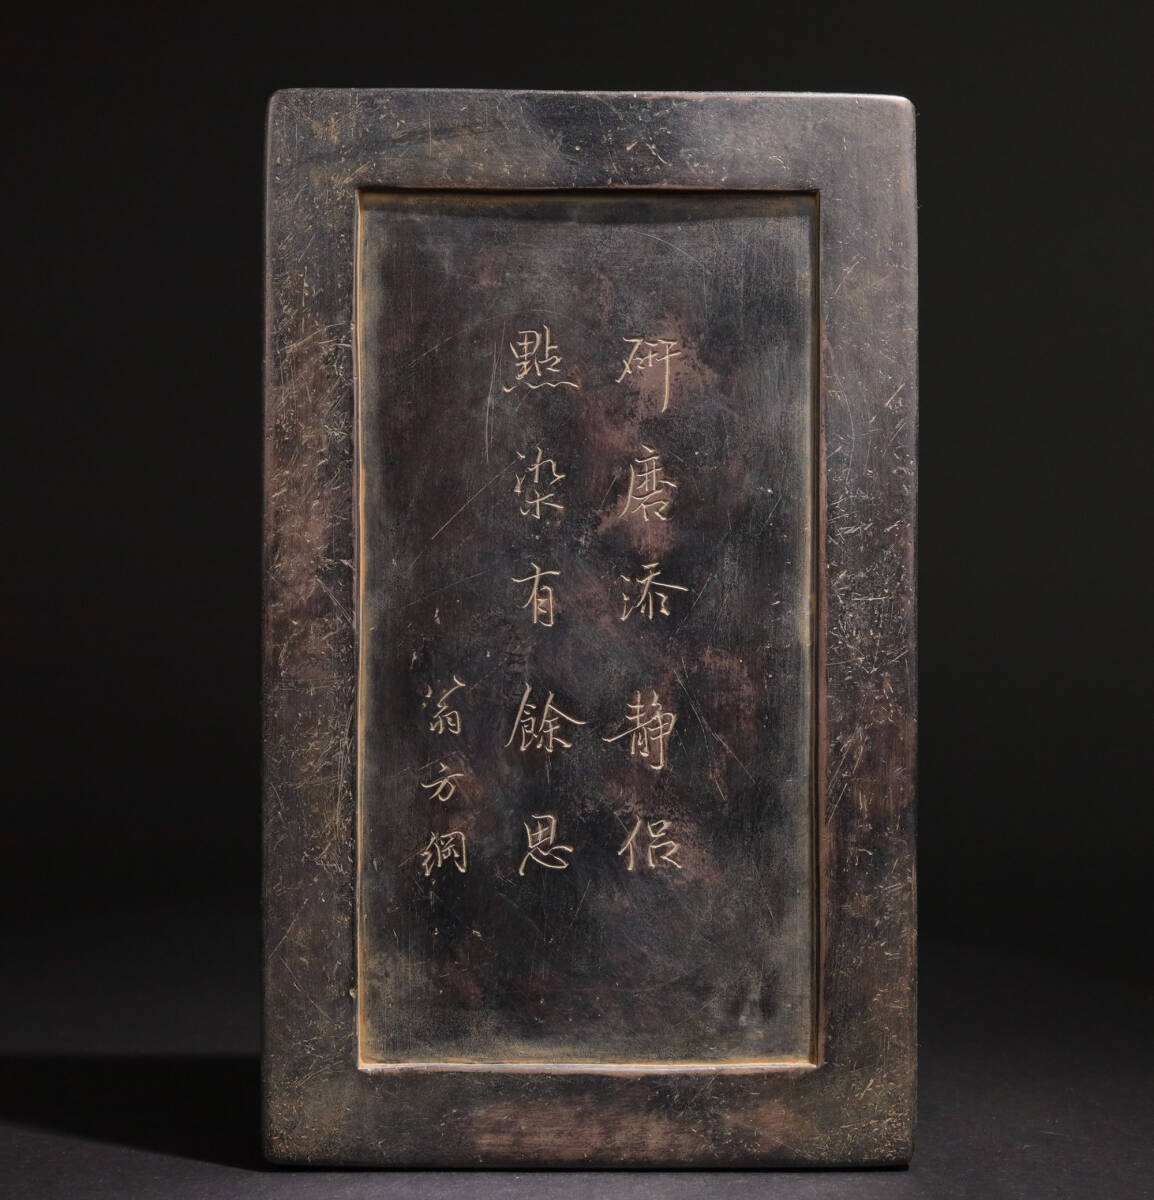 研磨添靜侶
點染有餘思
翁方綱